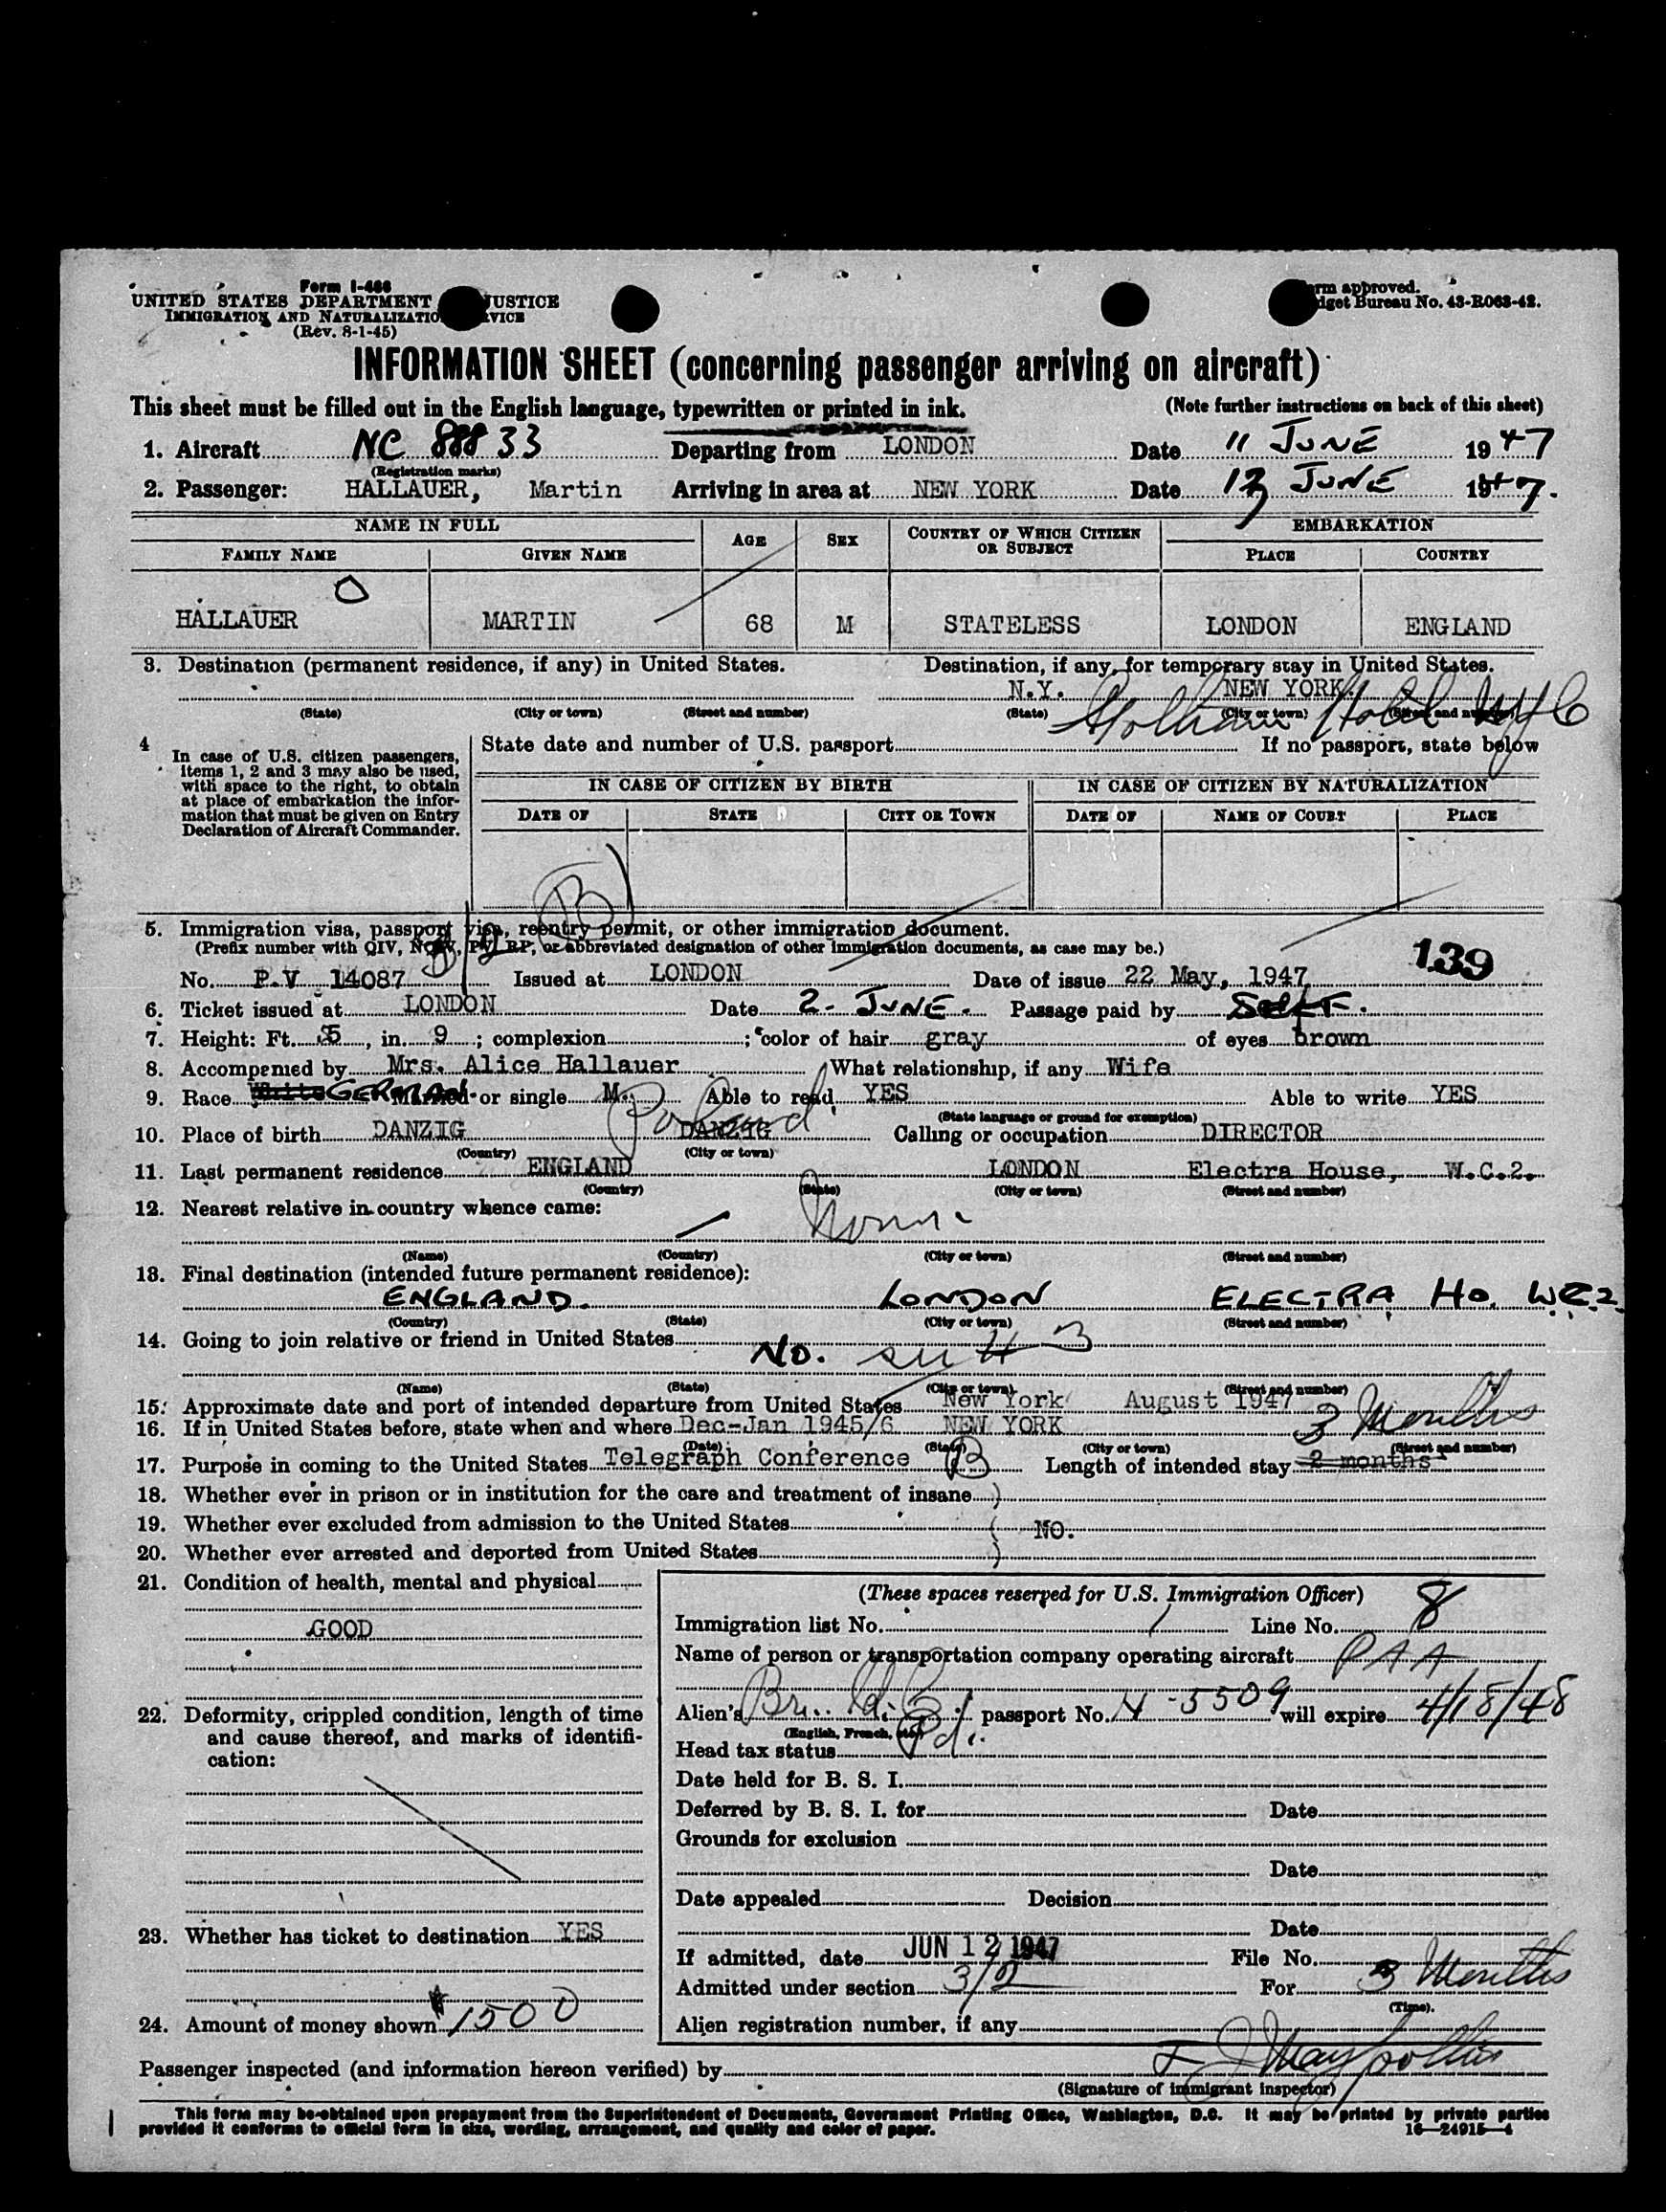 Form I-466
UNITED STATES DEPARTMENT JUSTICE
IMMIGRATION AND NATURALIZATIO VICE
(Rev. 8-1-45)
rm approved.
dget Bureau No. 43-R063-42.
INFORMATION SHEET (concerning passenger arriving on aircraft)
This sheet must be filled out in the English language, typewritten or printed in ink. (Note further instructions on back of this sheet)
1. Aircraft NC 88833 Departing from LONDON Date 11 JUNE 1947
(Registration marks)
2. Passenger: HALLAUER, Martin Arriving in area at NEW YORK Date JUNE 1947.
NAME IN FULL AGE SEX COUNTRY OF WHICH CITIZEN OR SUBJECT EMBARKATION
FAMILY NAME GIVEN NAME PLACE COUNTRY
HALLAUER MARTIN 68 M STATELESS LONDON ENGLAND
3. Destination (permanent residence, if any) in United States. Destination, if any, for temporary stay in United States.
N.Y. NEW YORK. Gotham Hotel NYC
(State) (City or town) (Street and number) (State) (City or town) (Street and number)
4 In case of U.S. citizen passengers, items 1, 2 and 3 may also be used, with space to the right, to obtain at place of embarkation the information that must be given on Entry Declaration of Aircraft Commander.
State date and number of U.S. passport If no passport, state below
IN CASE OF CITIZEN BY BIRTH IN CASE OF CITIZEN BY NATURALIZATION
DATE OF STATE CITY OR TOWN DATE OF NAME OF COURT PLACE
B
5. Immigration visa, passport visa, reentry permit, or other immigration document.
(Prefix number with QIV, NQIV, PV, RP, or abbreviated designation of other immigration documents, as case may be.)
139
No. P.V 14087 Issued at LONDON Date of issue 22 May, 1947
6. Ticket issued at LONDON Date 2 - JUNE. Passage paid by SELF.
7. Height: Ft. 5, in. 9; complexion; color of hair gray of eyes brown
8. Accompanied by Mrs. Alice Hallauer What relationship, if any Wife
9. Race White GERMAN. Married or single M. Able to read YES Able to write YES
(State language or ground for exemption)
10. Place of birth DANZIG Poland DANZIG Calling or occupation DIRECTOR
(Country) (City or town)
11. Last permanent residence ENGLAND LONDON Electra House, W.C.2.
(Country) (State) (City or town) (Street and number)
12. Nearest relative in country whence came:
None
(Name) (Country) (City or town) (Street and number)
13. Final destination (intended future permanent residence):
ENGLAND. LONDON ELECTRA Ho. W.C.2.
(Country) (State) (City or town) (Street and number)
14. Going to join relative or friend in United States
No. 3
(Name) (State) (City or town) (Street and number)
15. Approximate date and port of intended departure from United States New York August 1947
16. If in United States before, state when and where Dec-Jan 1945/6 NEW YORK 3 Months
(Date) (State) (City or town) (Street and number)
17. Purpose in coming to the United States Telegraph Conference B Length of intended stay 2 months
18. Whether ever in prison or in institution for the care and treatment of insane )
19. Whether ever excluded from admission to the United States ( NO.
20. Whether ever arrested and deported from United States )
21. Condition of health, mental and physical
GOOD
22. Deformity, crippled condition, length of time and cause thereof, and marks of identification:
23. Whether has ticket to destination YES
24. Amount of money shown 1500
(These spaces reserved for U.S. Immigration Officer)
Immigration list No. Line No. 8
Name of person or transportation company operating aircraft PAA
Alien's passport No. 5509 will expire 4/18/48
(English, French, etc.)
Head tax status
Date held for B. S. I.
Deferred by B. S. I. for Date
Grounds for exclusion
Date
Date appealed Decision
Date
If admitted, date JUN 12 1947 File No.
Admitted under section 3/2 For 3 Months
(Time).
Alien registration number, if any
Passenger inspected (and information hereon verified) by
(Signature of immigrant inspector)
This form may be obtained upon prepayment from the Superintendent of Documents, Government Printing Office, Washington, D.C. It may be printed by private parties
provided it conforms to official form in size, wording, arrangement, and quality and color of paper. 16—24915—4